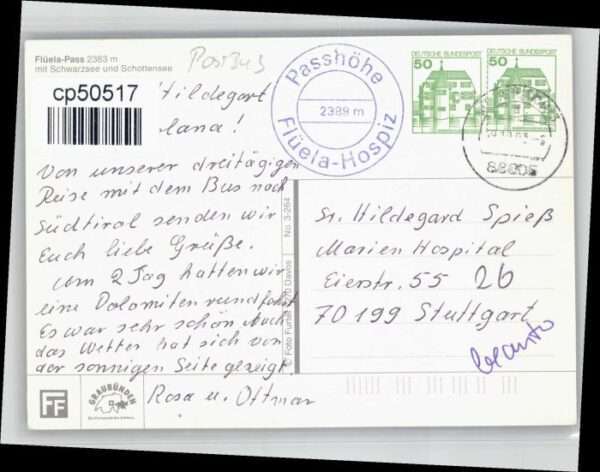 Flüela-Pass 2383 m
mit Schwarzsee und Schottensee
PostBus
cp50517
Hildegart
lana!
Von unserer dreitägigen
Reise mit dem Bus nach
Südtirol senden wir
Euch liebe Grüße.
Am 2 Tag hatten wir
eine Dolomitenrundfahrt
Es war sehr schön. Auch
das Wetter hat sich von
der sonnigen Seite gezeigt.
Rosa u. Ottmar
FF
GRAUBÜNDEN
No. 3-264
© Foto Furter 7270 Davos
Passhöhe
2389 m
Flüela-Hospiz
DEUTSCHE BUNDESPOST
50
DEUTSCHE BUNDESPOST
50
Sr. Hildegard Spieß
Marien Hospital
Eierstr. 55 2b
70199 Stuttgart